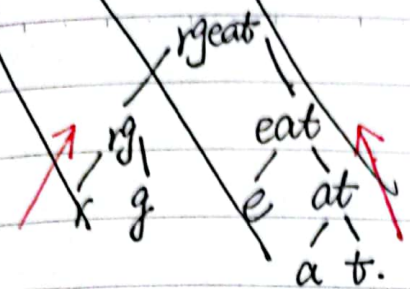 rgeat
rg eat
r g e at
a t.